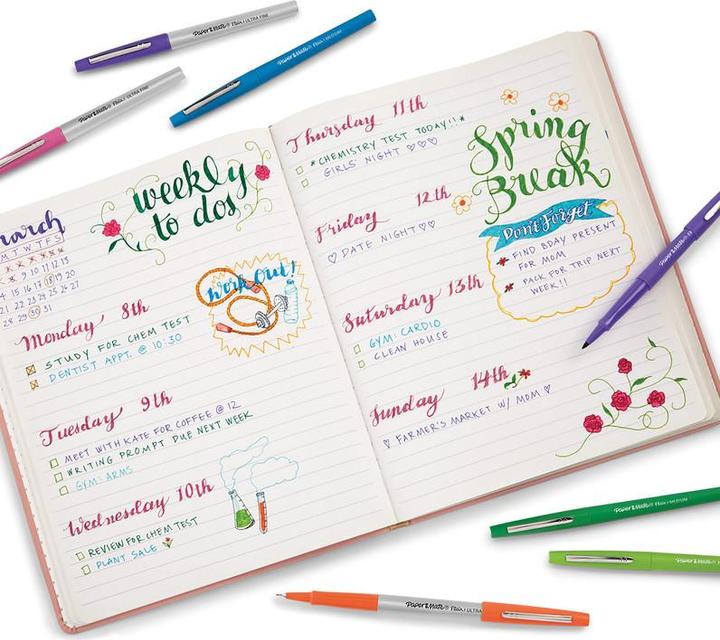 Paper Mate® Flair® ULTRA FINE
Paper Mate® Flair® MEDIUM
Paper Mate® Flair® ULTRA FINE
march
M T W T F S
weekly
to dos
Monday 8th
STUDY FOR CHEM TEST
DENTIST APPT. @ 10:30
Work Out!
Tuesday 9th
MEET WITH KATE FOR COFFEE @ 12
WRITING PROMPT DUE NEXT WEEK
GYM: ARMS
Wednesday 10th
REVIEW FOR CHEM TEST
PLANT SALE
Thursday 11th
*CHEMISTRY TEST TODAY!!*
GIRLS NIGHT ♡♡♡
Friday 12th
♡ DATE NIGHT ♡♡
Saturday 13th
GYM: CARDIO
CLEAN HOUSE
Sunday 14th
♡ FARMER'S MARKET W/ MOM ♡
Spring
Break
Don't Forget
FIND BDAY PRESENT
FOR MOM
PACK FOR TRIP NEXT
WEEK!!
Paper Mate® Flair® MEDIUM
Paper Mate® Flair®
Paper Mate® Flair® ULTRA